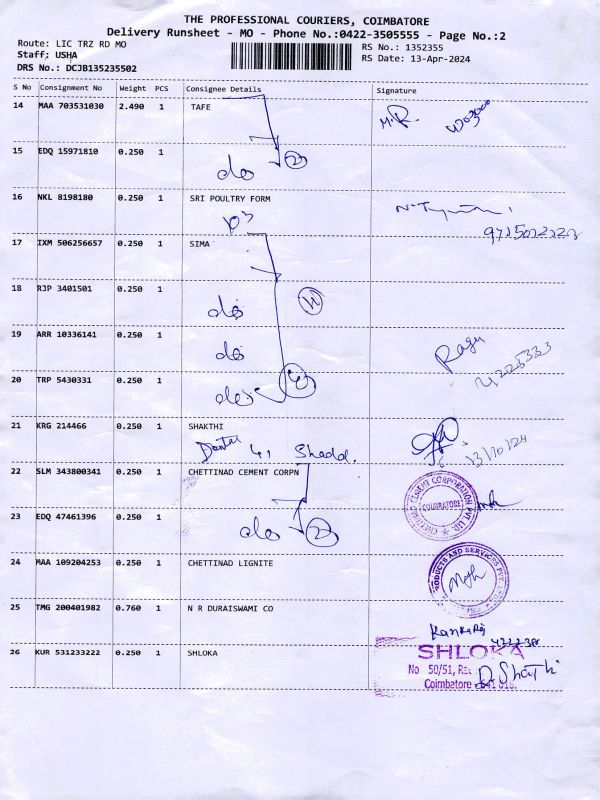 THE PROFESSIONAL COURIERS, COIMBATORE
Delivery Runsheet - MO - Phone No.:0422-3505555 - Page No.:2
Route: LIC TRZ RD MO
RS No.: 1352355
Staff: USHA
RS Date: 13-Apr-2024
DRS No.: DCJB135235502
S No Consignment No Weight PCS Consignee Details Signature
14 MAA 703531030 2.490 1 TAFE
M.R.
15 EDQ 15971810 0.250 1
do 2
16 NKL 8198180 0.250 1 SRI POULTRY FORM
17 IXM 506256657 0.250 1 SIMA
18 RJP 3401501 0.250 1
do
19 ARR 10336141 0.250 1
do
Ragu
4225333
20 TRP 5430331 0.250 1
do 4
21 KRG 214466 0.250 1 SHAKTHI
22 SLM 343800341 0.250 1 CHETTINAD CEMENT CORPN
CHETTINAD CEMENT CORPORATION PVT. LTD.
COIMBATORE
23 EDQ 47461396 0.250 1
do 2
24 MAA 109204253 0.250 1 CHETTINAD LIGNITE
PRODUCTS AND SERVICES PVT.
25 TMG 200401982 0.760 1 N R DURAISWAMI CO
26 KUR 531233222 0.250 1 SHLOKA
SHLOKA
No 50/51,
Coimbatore